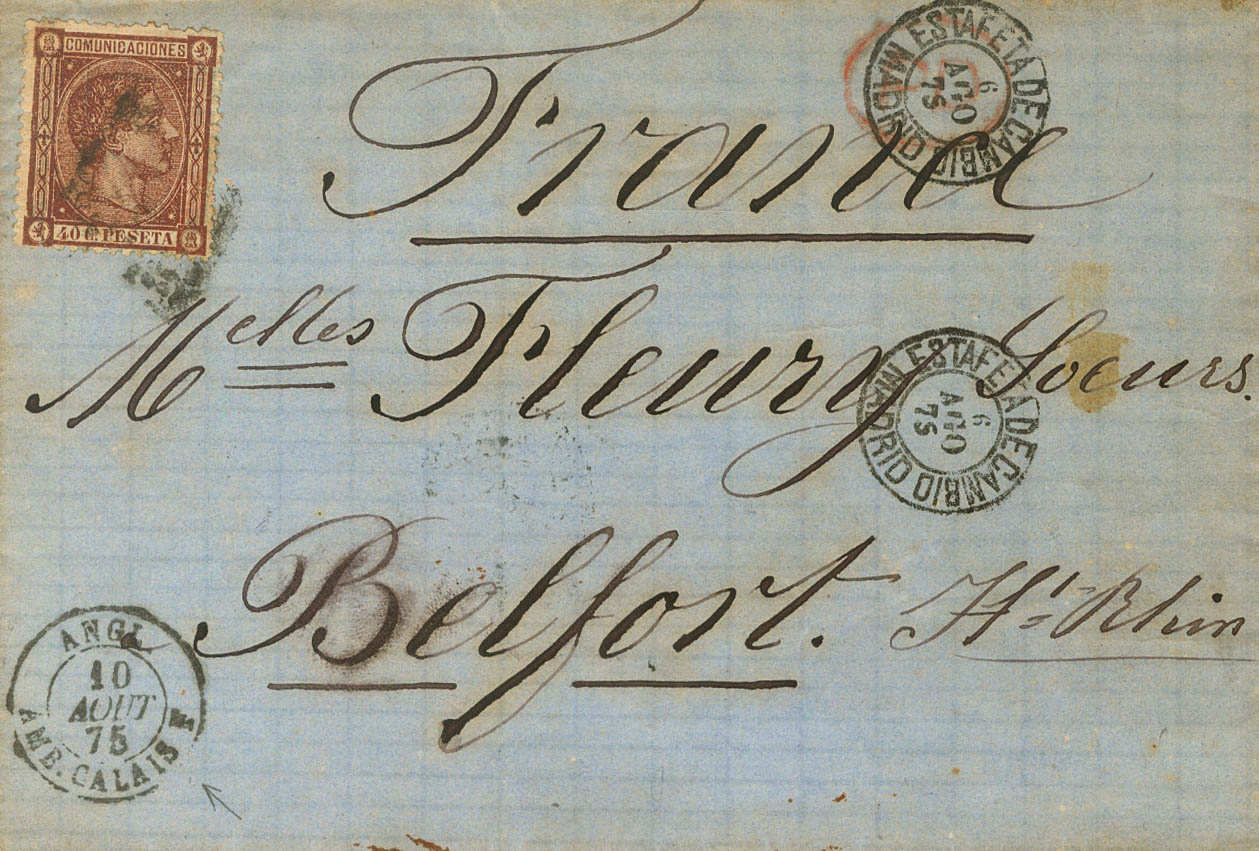 COMUNICACIONES
40 C. PESETA
ESTAFETA DE CAMBIO MADRID
6
AGO
75
France
Melles Fleury Soeurs.
ESTAFETA DE CAMBIO MADRID
6
AGO
75
Belfort. Ht-Rhin
ANGL.
10
AOUT
75
AMB. CALAIS